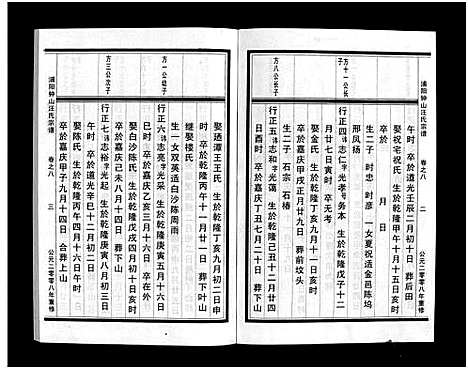 浦阳钟山汪氏宗谱
卷之八
二
公元二零零八年重修
午时 卒於道光壬辰二月初九日子时 葬后田
娶祝宅祝氏 生於乾隆甲午十月十五日亥时
卒於 月 日
生二子 时忠 时彦 一女夏祝适金邑陈坞
邢凤扬
方十一公长子
行正四 讳志仁 字光孝 号务本 生於乾隆戊子十二
月廿七日寅时 卒无考
娶金氏 生於乾隆丁亥十一月初九日亥时
卒於嘉庆甲戌正月廿九日 葬前坟头
生二子 石宗 石椿
方八公长子
行正五 讳志和 字光蔼 生於乾隆己丑十二月廿六
日酉时 卒於嘉庆丁丑七月二十日
娶珤潭王王氏 生於乾隆丁亥九月初二日申
时 卒於乾隆丙午十一月廿一日 葬下叶山
继娶楼氏
生一女双英适白沙陈周雨
方一公幼子
行正六 讳志亮 字光采 生於乾隆庚寅五月十六日
巳时 卒於嘉庆乙亥三月十六日 卒在外
娶白沙陈氏 生於乾隆戊戌四月初四日亥时
卒於嘉庆己未八月十四日 葬下山
方三公次子
行正七 讳志 字光起 生於乾隆庚寅八月初三日
午时 卒於道光辛巳十二月初二日
娶陈氏 生於乾隆丙申四月十六日午时
卒於嘉庆甲子九月十四日 合葬上山
浦阳钟山汪氏宗谱
卷之八
三
公元二零零八年重修